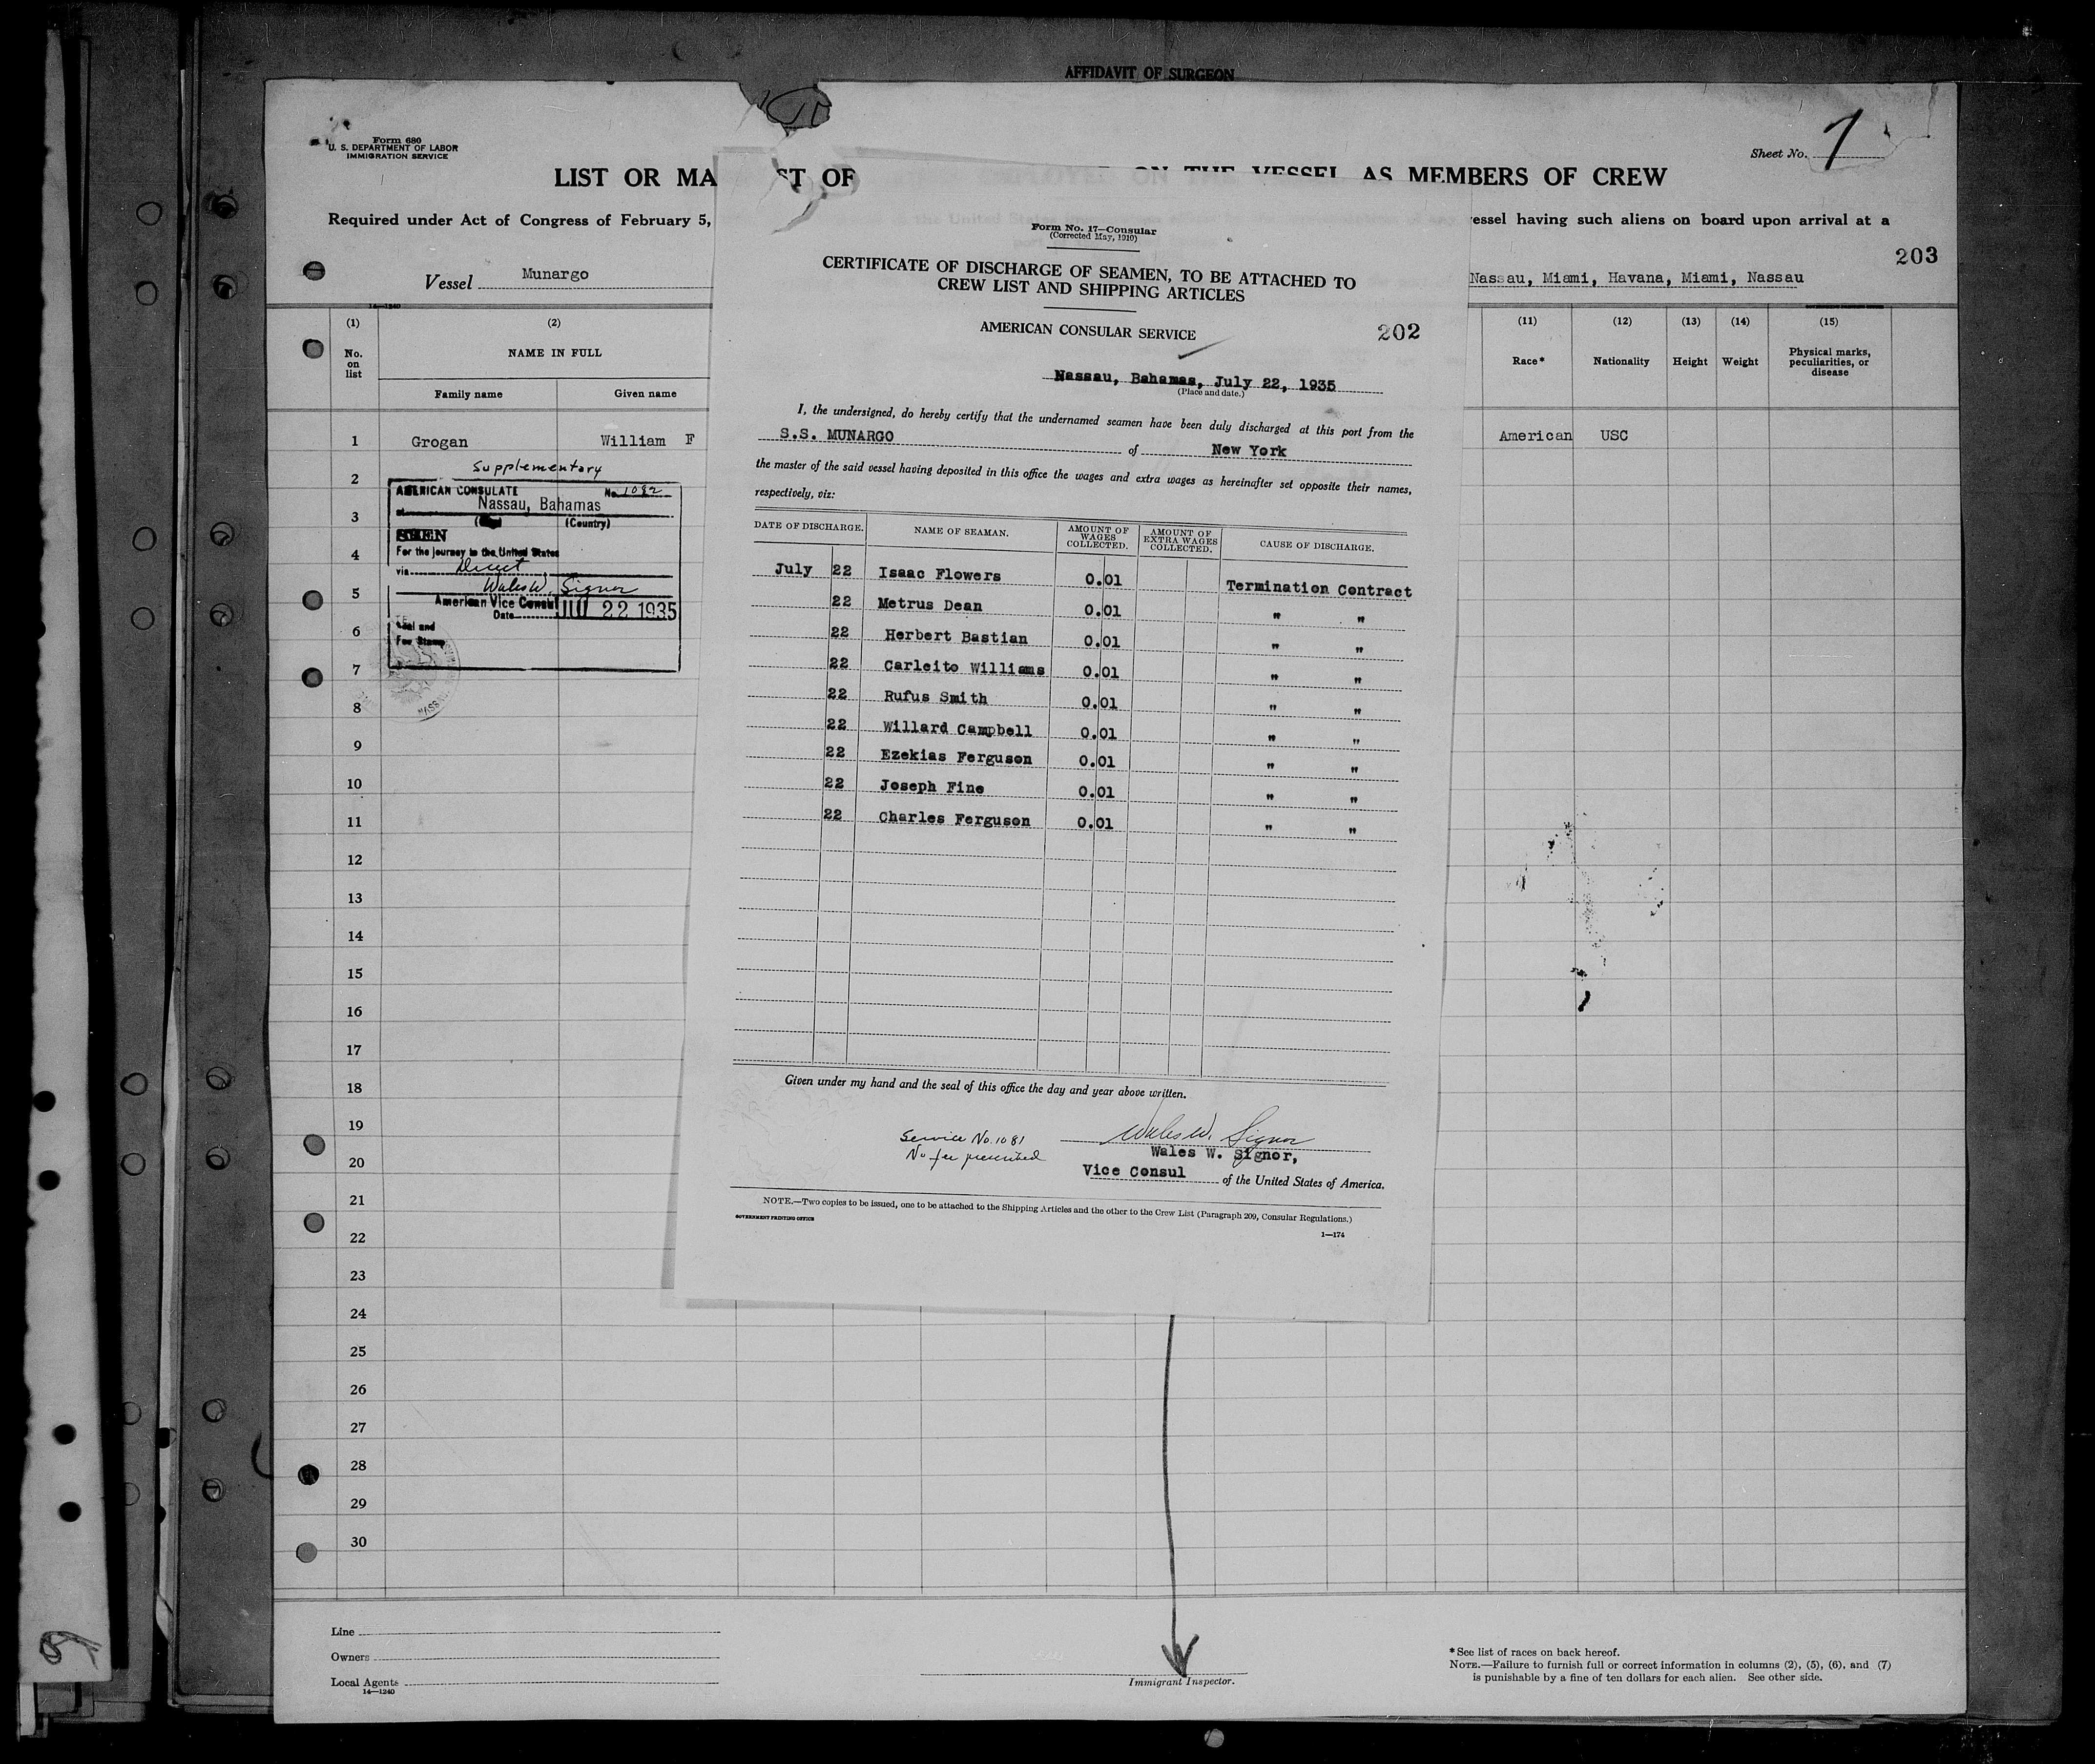 AFFIDAVIT OF SURGEON
Form 680
U. S. DEPARTMENT OF LABOR
IMMIGRATION SERVICE
Sheet No. 7
LIST OR MA ST OF ON THE VESSEL AS MEMBERS OF CREW
Required under Act of Congress of February 5, essel having such aliens on board upon arrival at a
203
Vessel Munargo
Nassau, Miami, Havana, Miami, Nassau
14—1240
(1) (2) (11) (12) (13) (14) (15)
No. on list
NAME IN FULL
Family name Given name
Race* Nationality Height Weight Physical marks, peculiarities, or disease
1 Grogan William F American USC
Supplementary
2
3
4
5
6
7
8
9
10
11
12
13
14
15
16
17
18
19
20
21
22
23
24
25
26
27
28
29
30
AMERICAN CONSULATE No. 1082
Nassau, Bahamas
(Country)
SEEN
For the journey to the United States
via Direct
Wales W. Signor
American Vice Consul
Date JUL 22 1935
Seal and
Fee Stamp
Form No. 17—Consular
(Corrected May, 1910)
CERTIFICATE OF DISCHARGE OF SEAMEN, TO BE ATTACHED TO
CREW LIST AND SHIPPING ARTICLES
AMERICAN CONSULAR SERVICE
202
Nassau, Bahamas, July 22, 1935
(Place and date.)
I, the undersigned, do hereby certify that the undernamed seamen have been duly discharged at this port from the
S.S. MUNARGO of New York
the master of the said vessel having deposited in this office the wages and extra wages as hereinafter set opposite their names,
respectively, viz:
DATE OF DISCHARGE. NAME OF SEAMAN. AMOUNT OF WAGES COLLECTED. AMOUNT OF EXTRA WAGES COLLECTED. CAUSE OF DISCHARGE.
July 22 Isaac Flowers 0.01 Termination Contract
22 Metrus Dean 0.01 " "
22 Herbert Bastian 0.01 " "
22 Carleito Williams 0.01 " "
22 Rufus Smith 0.01 " "
22 Willard Campbell 0.01 " "
22 Ezekias Ferguson 0.01 " "
22 Joseph Fine 0.01 " "
22 Charles Ferguson 0.01 " "
Given under my hand and the seal of this office the day and year above written.
Service No. 1081
No fee prescribed
Wales W. Signor
Wales W. Signor,
Vice Consul of the United States of America.
NOTE.—Two copies to be issued, one to be attached to the Shipping Articles and the other to the Crew List (Paragraph 209, Consular Regulations.)
GOVERNMENT PRINTING OFFICE
1—174
Line
Owners
Local Agents
14—1240
Immigrant Inspector.
*See list of races on back hereof.
NOTE.—Failure to furnish full or correct information in columns (2), (5), (6), and (7)
is punishable by a fine of ten dollars for each alien. See other side.